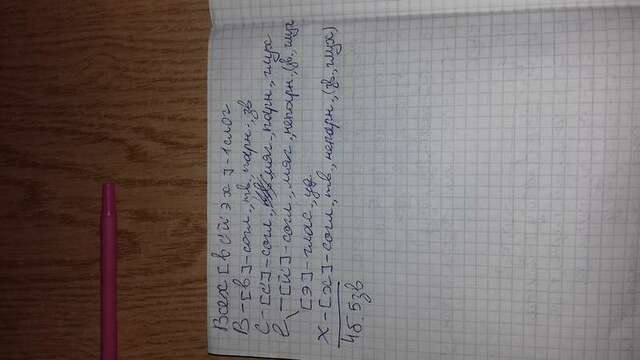 Всех [в с' й' э х] - 1 слог
В - [в] - согл., тв. парн., зв
С - [с'] - согл., мяг., парн., глух
е - [й'] - согл., мяг., непарн., (зв., глух
[э] - глас., уд.
Х - [х] - согл., тв., непарн., (зв., глух)
4б. 5зв